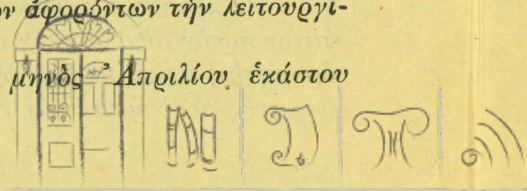 ων ἀφορόντων τὴν λειτουργι-
μηνὸς Ἀπριλίου ἑκάστου